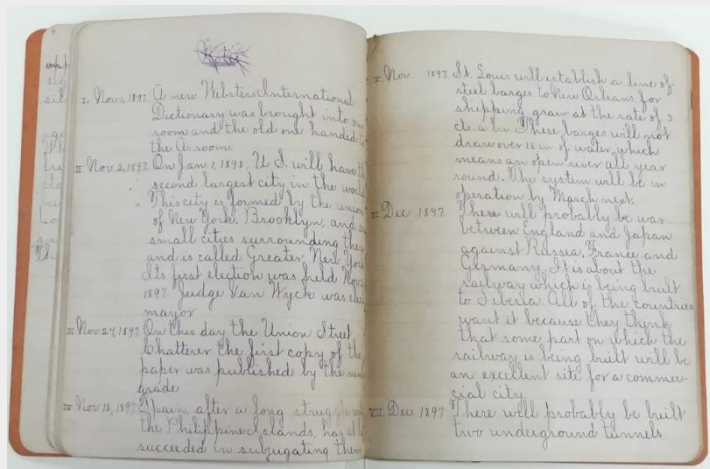 I. Nov. 1, 1897. A new Webster's International
Dictionary was brought into our
room and the old one handed to
the A room.
II. Nov. 2, 1897. On Jan. 1, 1898, U.S. will have the
second largest city in the world
This city is formed by the union
of New York, Brooklyn, and
small cities surrounding them
and is called Greater New York
Its first election was held Nov. 2
1897. Judge Van Wyck was elec
mayor
III. Nov. 24, 1897. On this day the Union Street
Chatterer the first copy of the
paper was published by the
grade
IV. Nov. 18, 1897. Spain, after a long struggle
the Philippine Islands, has at
succeeded in subjugating them
V. Nov. 1897. St. Louis will establish a line of
steel barges to New Orleans for
shipping grain at the rate of 3
cts. a bu. These barges will not
draw over 18 in. of water which
means an open river all year
round. The system will be in
operation by March next.
VI Dec. 1897. There will probably be war
between England and Japan
against Russia, France and
Germany. It is about the
railway which is being built
to Siberia. All of the countries
want it because they think
that some part on which the
railway is being built will be
an excellent site for a commer-
cial city.
VII Dec. 1897 There will probably be built
two underground tunnels